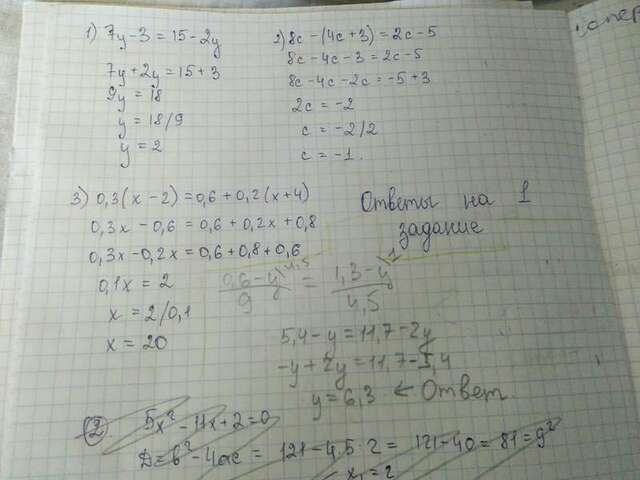 1) 7y - 3 = 15 - 2y
7y + 2y = 15 + 3
9y = 18
y = 18/9
y = 2
2) 8c - (4c + 3) = 2c - 5
8c - 4c - 3 = 2c - 5
8c - 4c - 2c = -5 + 3
2c = -2
c = -2/2
c = -1.
3) 0,3(x - 2) = 0,6 + 0,2(x + 4)
0,3x - 0,6 = 0,6 + 0,2x + 0,8
0,3x - 0,2x = 0,6 + 0,8 + 0,6
0,1x = 2
x = 2/0,1
x = 20
Ответы на 1
задание
0,6 - y / 9 = 1,3 - y / 4,5
5,4 - y = 11,7 - 2y
-y + 2y = 11,7 - 5,4
y = 6,3 ← Ответ.
2 5x² - 11x + 2 = 0
D = b² - 4ac = 121 - 4·5·2 = 121 - 40 = 81 = 9²
x₁ = 2